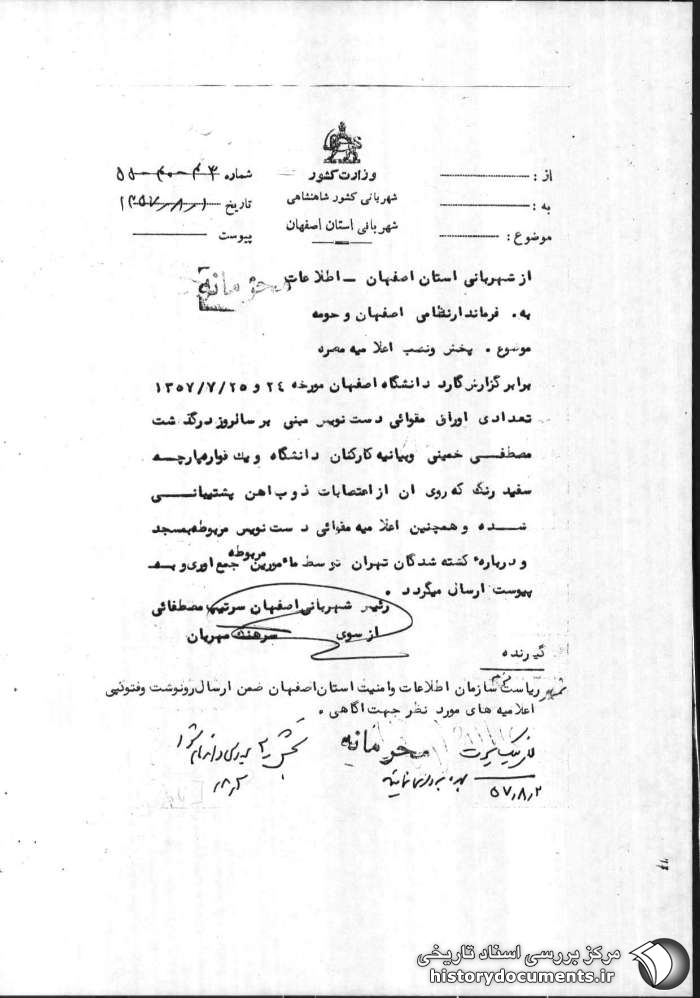 وزارت کشور
شهربانی کشور شاهنشاهی
شهربانی استان اصفهان
از :
به :
موضوع :
شماره ۲۴-۲۰-۵۵
تاریخ ۱۳۵۷/۸/۱
پیوست
از شهربانی استان اصفهان – اطلاعات
محرمانه
به . فرماندار نظامی اصفهان و حومه
موضوع . پخش ونصب اعلامیه مضره
برابر گزارش گارد دانشگاه اصفهان مورخه ۲۴ و ۱۳۵۷/۷/۲۵
تعدادی اوراق مقوائی دست نویس مبنی بر سالروز درگذشت
مصطفی خمینی وبیانیه کارکنان دانشگاه ویک قواره پارچه
سفید رنگ که روی ان از اعتصابات ذوب اهن پشتیبانی
شده و همچنین اعلامیه مقوائی دست نویس مربوطه بمسجد
و درباره کشته شدگان تهران توسط مامورین مربوطه جمع اوری و به
پیوست ارسال میگردد .
رئیس شهربانی اصفهان سرتیپ مصطفائی
از سوی سرهنگ مهربان
گیرنده
ریاست سازمان اطلاعات وامنیت استان اصفهان ضمن ارسال رونوشت وفتوکپی
اعلامیه های مورد نظر جهت آگاهی .
محرمانه
۵۷/۸/۲
مرکز بررسی اسناد تاریخی
historydocuments.ir